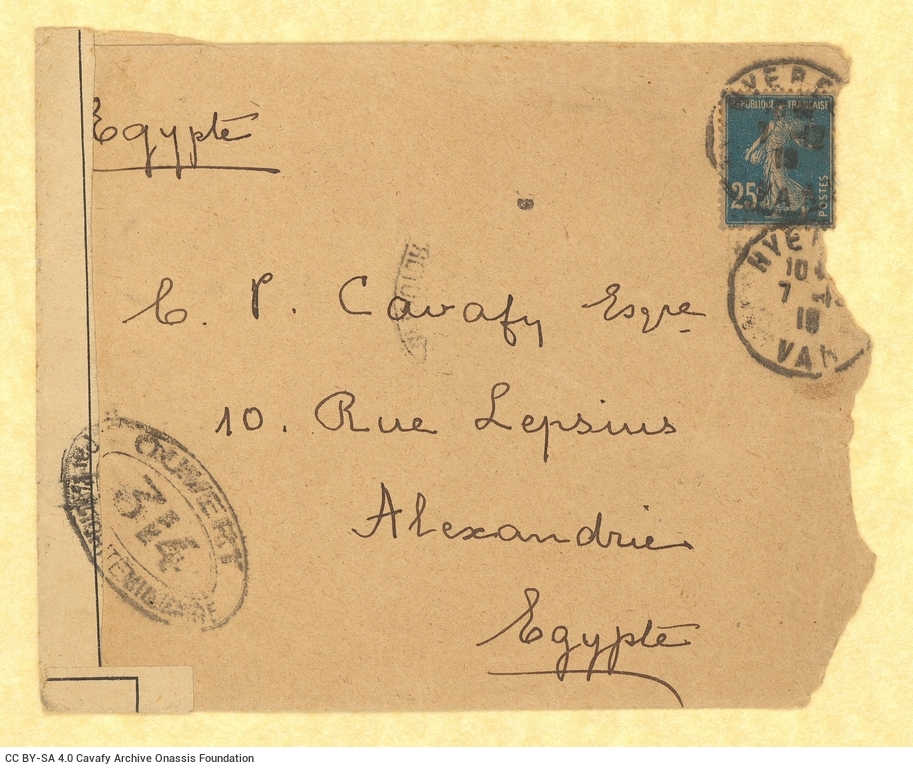 Egypte
HYERE
REPUBLIQUE FRANÇAISE
25c
POSTES
HYE
10
7
18
VAR
C. P. Cavafy Esqre
10. Rue Lepsius
Alexandrie
Egypte
OUVERT
314
MILITAIRE
CC BY-SA 4.0 Cavafy Archive Onassis Foundation